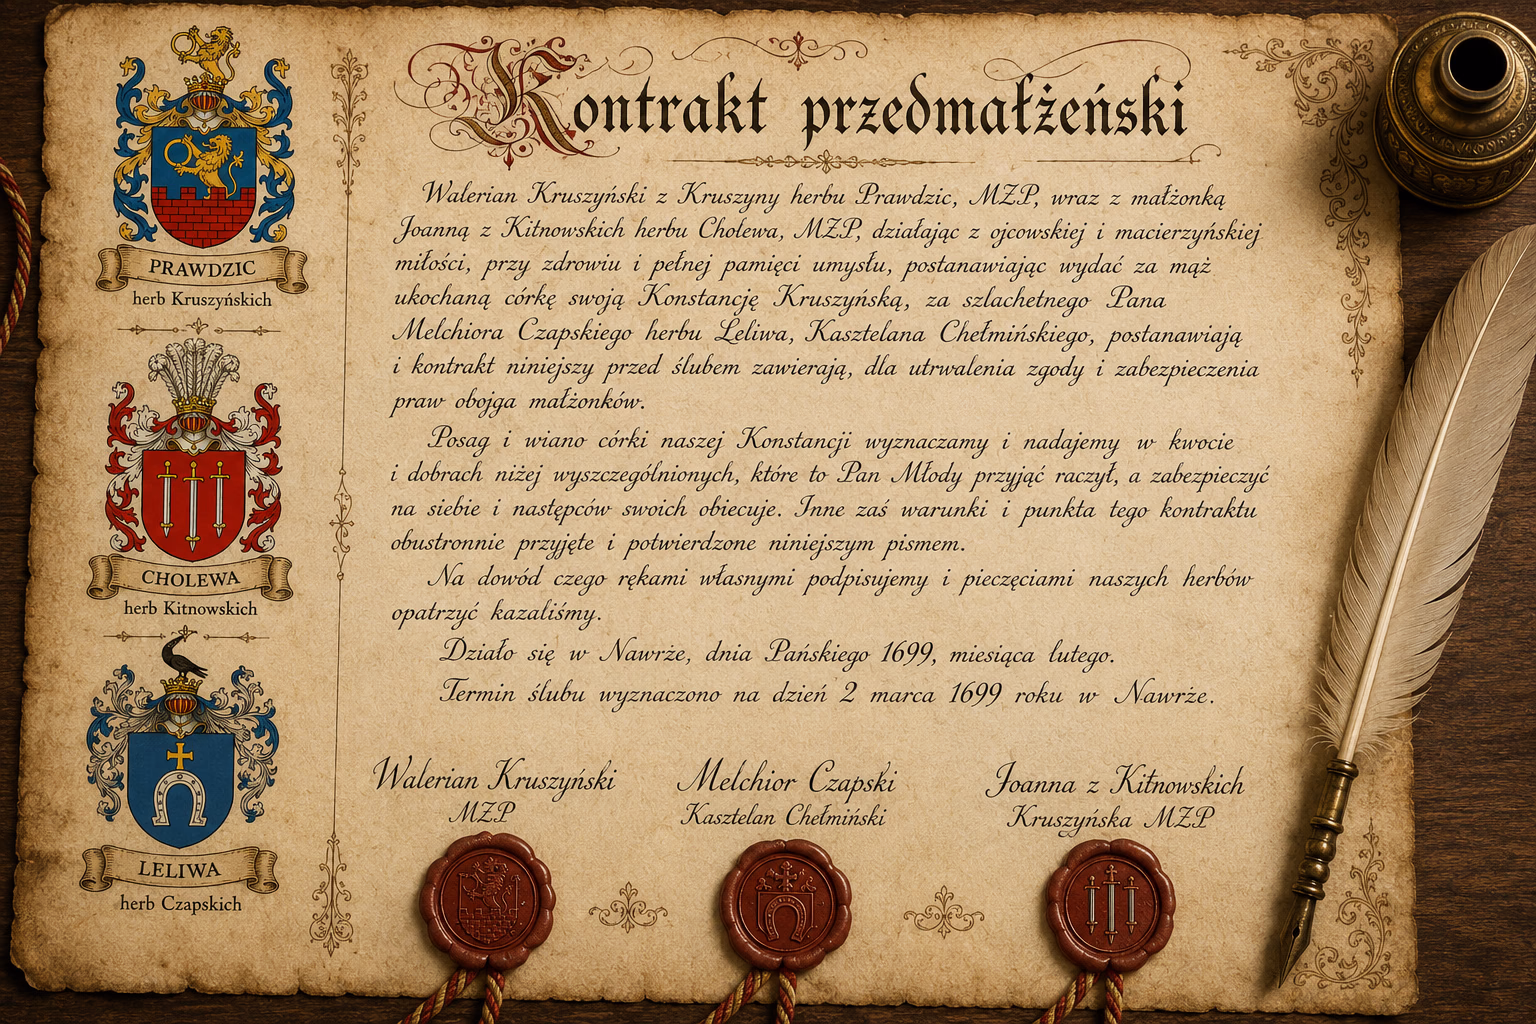 PRAWDZIC
herb Kruszyńskich
CHOLEWA
herb Kitnowskich
LELIWA
herb Czapskich
Kontrakt przedmałżeński
Walerian Kruszyński z Kruszyny herbu Prawdzic, MŻP, wraz z małżonką
Joanną z Kitnowskich herbu Cholewa, MŻP, działając z ojcowskiej i macierzyńskiej
miłości, przy zdrowiu i pełnej pamięci umysłu, postanawiając wydać za mąż
ukochaną córkę swoją Konstancję Kruszyńską, za szlachetnego Pana
Melchiora Czapskiego herbu Leliwa, Kasztelana Chełmińskiego, postanawiają
i kontrakt niniejszy przed ślubem zawierają, dla utrwalenia zgody i zabezpieczenia
praw obojga małżonków.
Posag i wiano córki naszej Konstancji wyznaczamy i nadajemy w kwocie
i dobrach niżej wyszczególnionych, które to Pan Młody przyjąć raczył, a zabezpieczyć
na siebie i następców swoich obiecuje. Inne zaś warunki i punkta tego kontraktu
obustronnie przyjęte i potwierdzone niniejszym pismem.
Na dowód czego rękami własnymi podpisujemy i pieczęciami naszych herbów
opatrzyć kazaliśmy.
Działo się w Nawrże, dnia Pańskiego 1699, miesiąca lutego.
Termin ślubu wyznaczono na dzień 2 marca 1699 roku w Nawrże.
Walerian Kruszyński
MŻP
Melchior Czapski
Kasztelan Chełmiński
Joanna z Kitnowskich
Kruszyńska MŻP